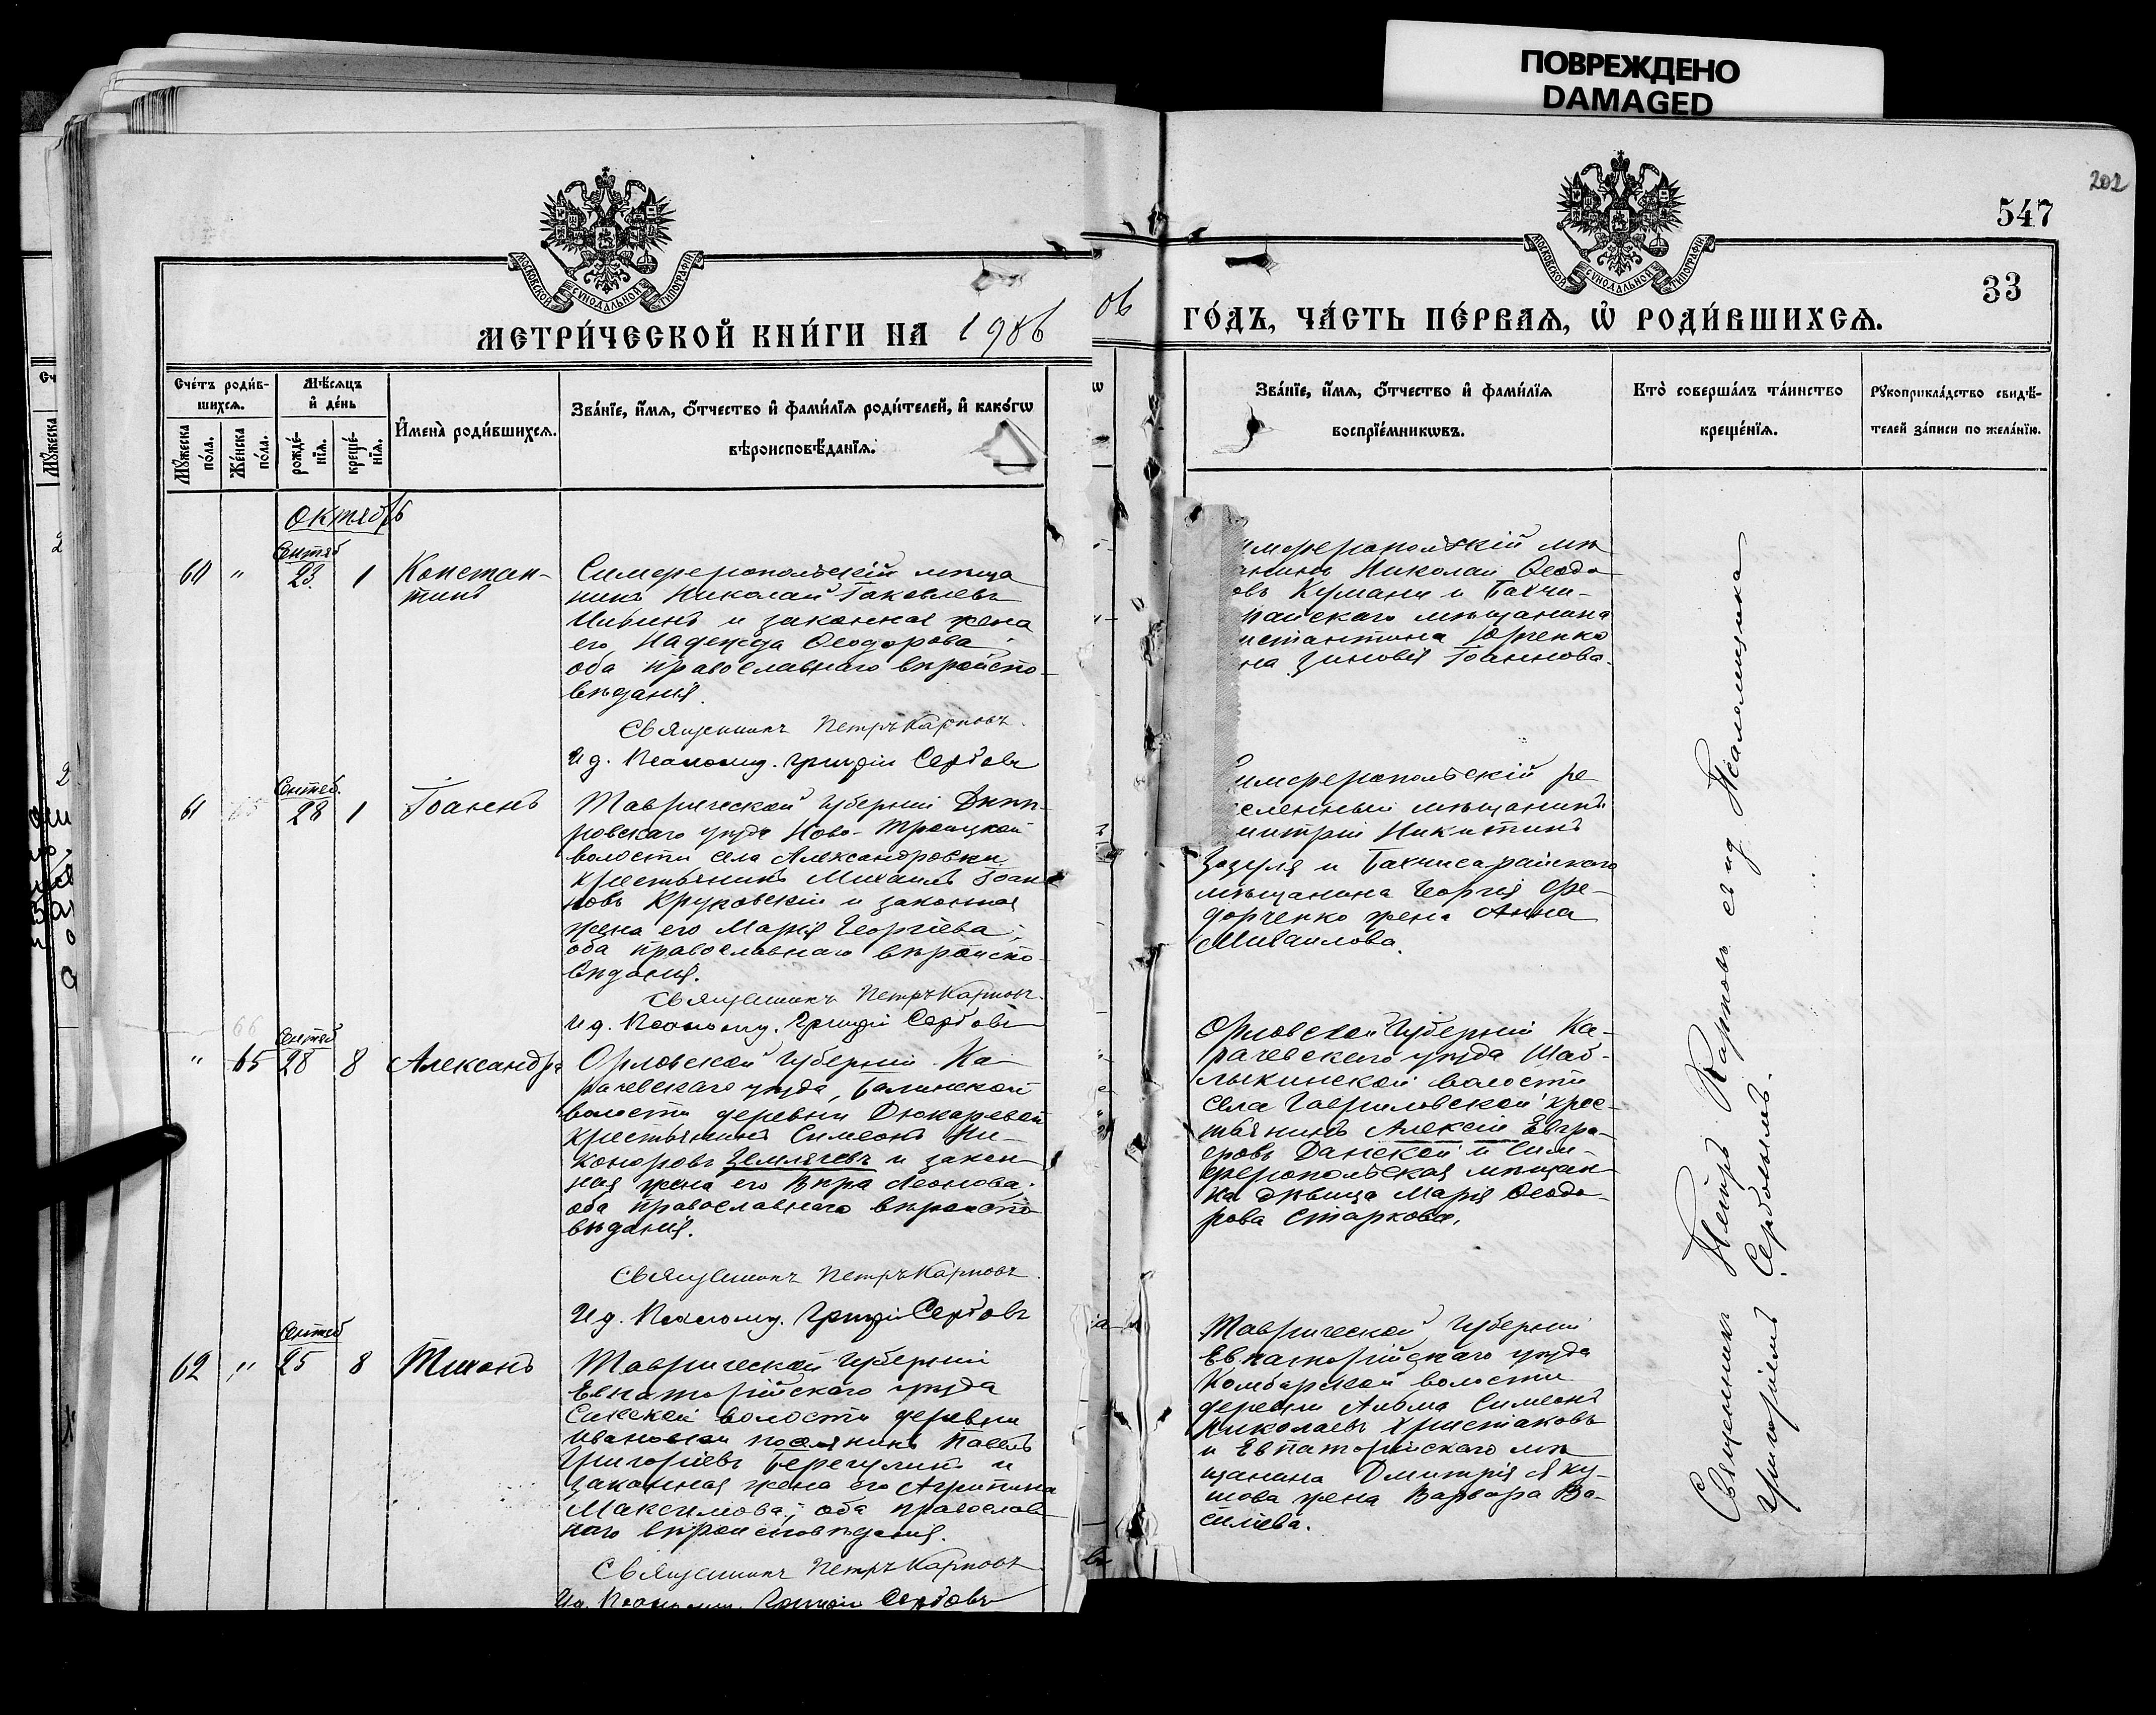 ПОВРЕЖДЕНО
DAMAGED
202
547
33
МОСКОВСКОЙ СѴНОДАЛЬНОЙ ТИПОГРАФІИ
МОСКОВСКОЙ СѴНОДАЛЬНОЙ ТИПОГРАФІИ
МЕТРИ́ЧЕСКОЙ КНИ́ГИ НА 1906
ГО́ДЪ, ЧА́СТЬ ПЕ́РВАѦ, Ѿ РОДИ́ВШИХСѦ.
Сче́тъ роди́в-
шихсѧ.
Мꙋ́жеска по́ла.
Же́нска по́ла.
Мѣ́сѧцъ
и҆ де́нь
рожде́-
нїѧ.
креще́-
нїѧ.
И҆мена̀ роди́вшихсѧ.
Зва́нїе, и҆́мѧ, ѻ҆́тчество и҆ фамѝлїѧ роди́телей, и҆ како́гѡ
вѣроисповѣ́данїѧ.
Зва́нїе, и҆́мѧ, ѻ҆́тчество и҆ фами́лїѧ
воспрїе́мникѡвъ.
Кто̀ соверша́лъ та́инство
креще́нїѧ.
Рꙋкоприкла́дство свидѣ́-
телей за́писи по жела́нїю.
Октябрь
60 " Сентяб 23 1 Констан-
тинъ
Симферопольскій мѣща
нинъ Николай Іаковлевъ
и законная жена
его Надежда Ѳеодорова
оба православнаго вѣроиспо-
вѣданія.
Священникъ Петръ Карповъ.
И д. Псаломщ. Григорій Сербовъ
имферопольскій мѣ
анинъ Николай Ѳеодо
овъ Кумани и Бахчи-
райскаго мѣщанина
нстантина Юрченко
на Зиновія Іоаннова.
61 Сентяб. 28 1 Іоаннъ
Таврической губерніи Днѣп-
ровскаго уѣзда Ново-Троицкой
волости села Александровки
крестьянинъ Михаилъ Іоан
новъ Круковскій и законная
жена его Марія Георгіева;
оба православнаго вѣроиспо-
вѣданія.
Священникъ Петръ Карповъ.
И д. Псаломщ. Григорій Сербовъ
имферопольскій ре
сленный мѣщанинъ
митрій Никитинъ
Зозуля и Бахчисарайскаго
мѣщанина Георгія Фе-
дорченко жена Анна
Михаилова.
66
" 65 Сентяб 28 8 Александра
Орловской губерніи Ка-
рачевскаго уѣзда,
волости деревни Дюкаревой
крестьянинъ Симеонъ Ни-
коноровъ Землячевъ и закон
ная жена его Вѣра Леонова.
оба православнаго вѣроиспо
вѣданія.
Священникъ Петръ Карповъ.
И д. Псаломщ. Григорій Сербовъ
Орловской губерніи Ка-
рачевскаго уѣзда Шаб-
лыкинской волости
села Гавриловской крес-
тьянинъ Алексій Евгра-
фовъ Данской и Сим-
феропольская мѣщан
ка дѣвица Марія Ѳеодо-
рова Старкова.
62 " Сентяб 25 8 Тихонъ
Таврической губерніи
Евпаторійскаго уѣзда
Сакской волости деревни
Ивановки поселянинъ Павелъ
Григоріевъ и
законная жена его Агрипина
Максимова; оба православ
наго вѣроисповѣданія.
Священникъ Петръ Карповъ.
И д. Псаломщ. Григорій Сербовъ
Таврической губерніи
Евпаторійскаго уѣзда
Камбарской волости
деревни Альма Симеонъ
Николаевъ Христаковъ
и Евпаторійскаго мѣ
щанина Дмитрія Яку-
шова жена Варвара Ва-
силіева.
Священникъ Петръ Карповъ съ и д Псаломщика
Григоріемъ Сербовымъ.